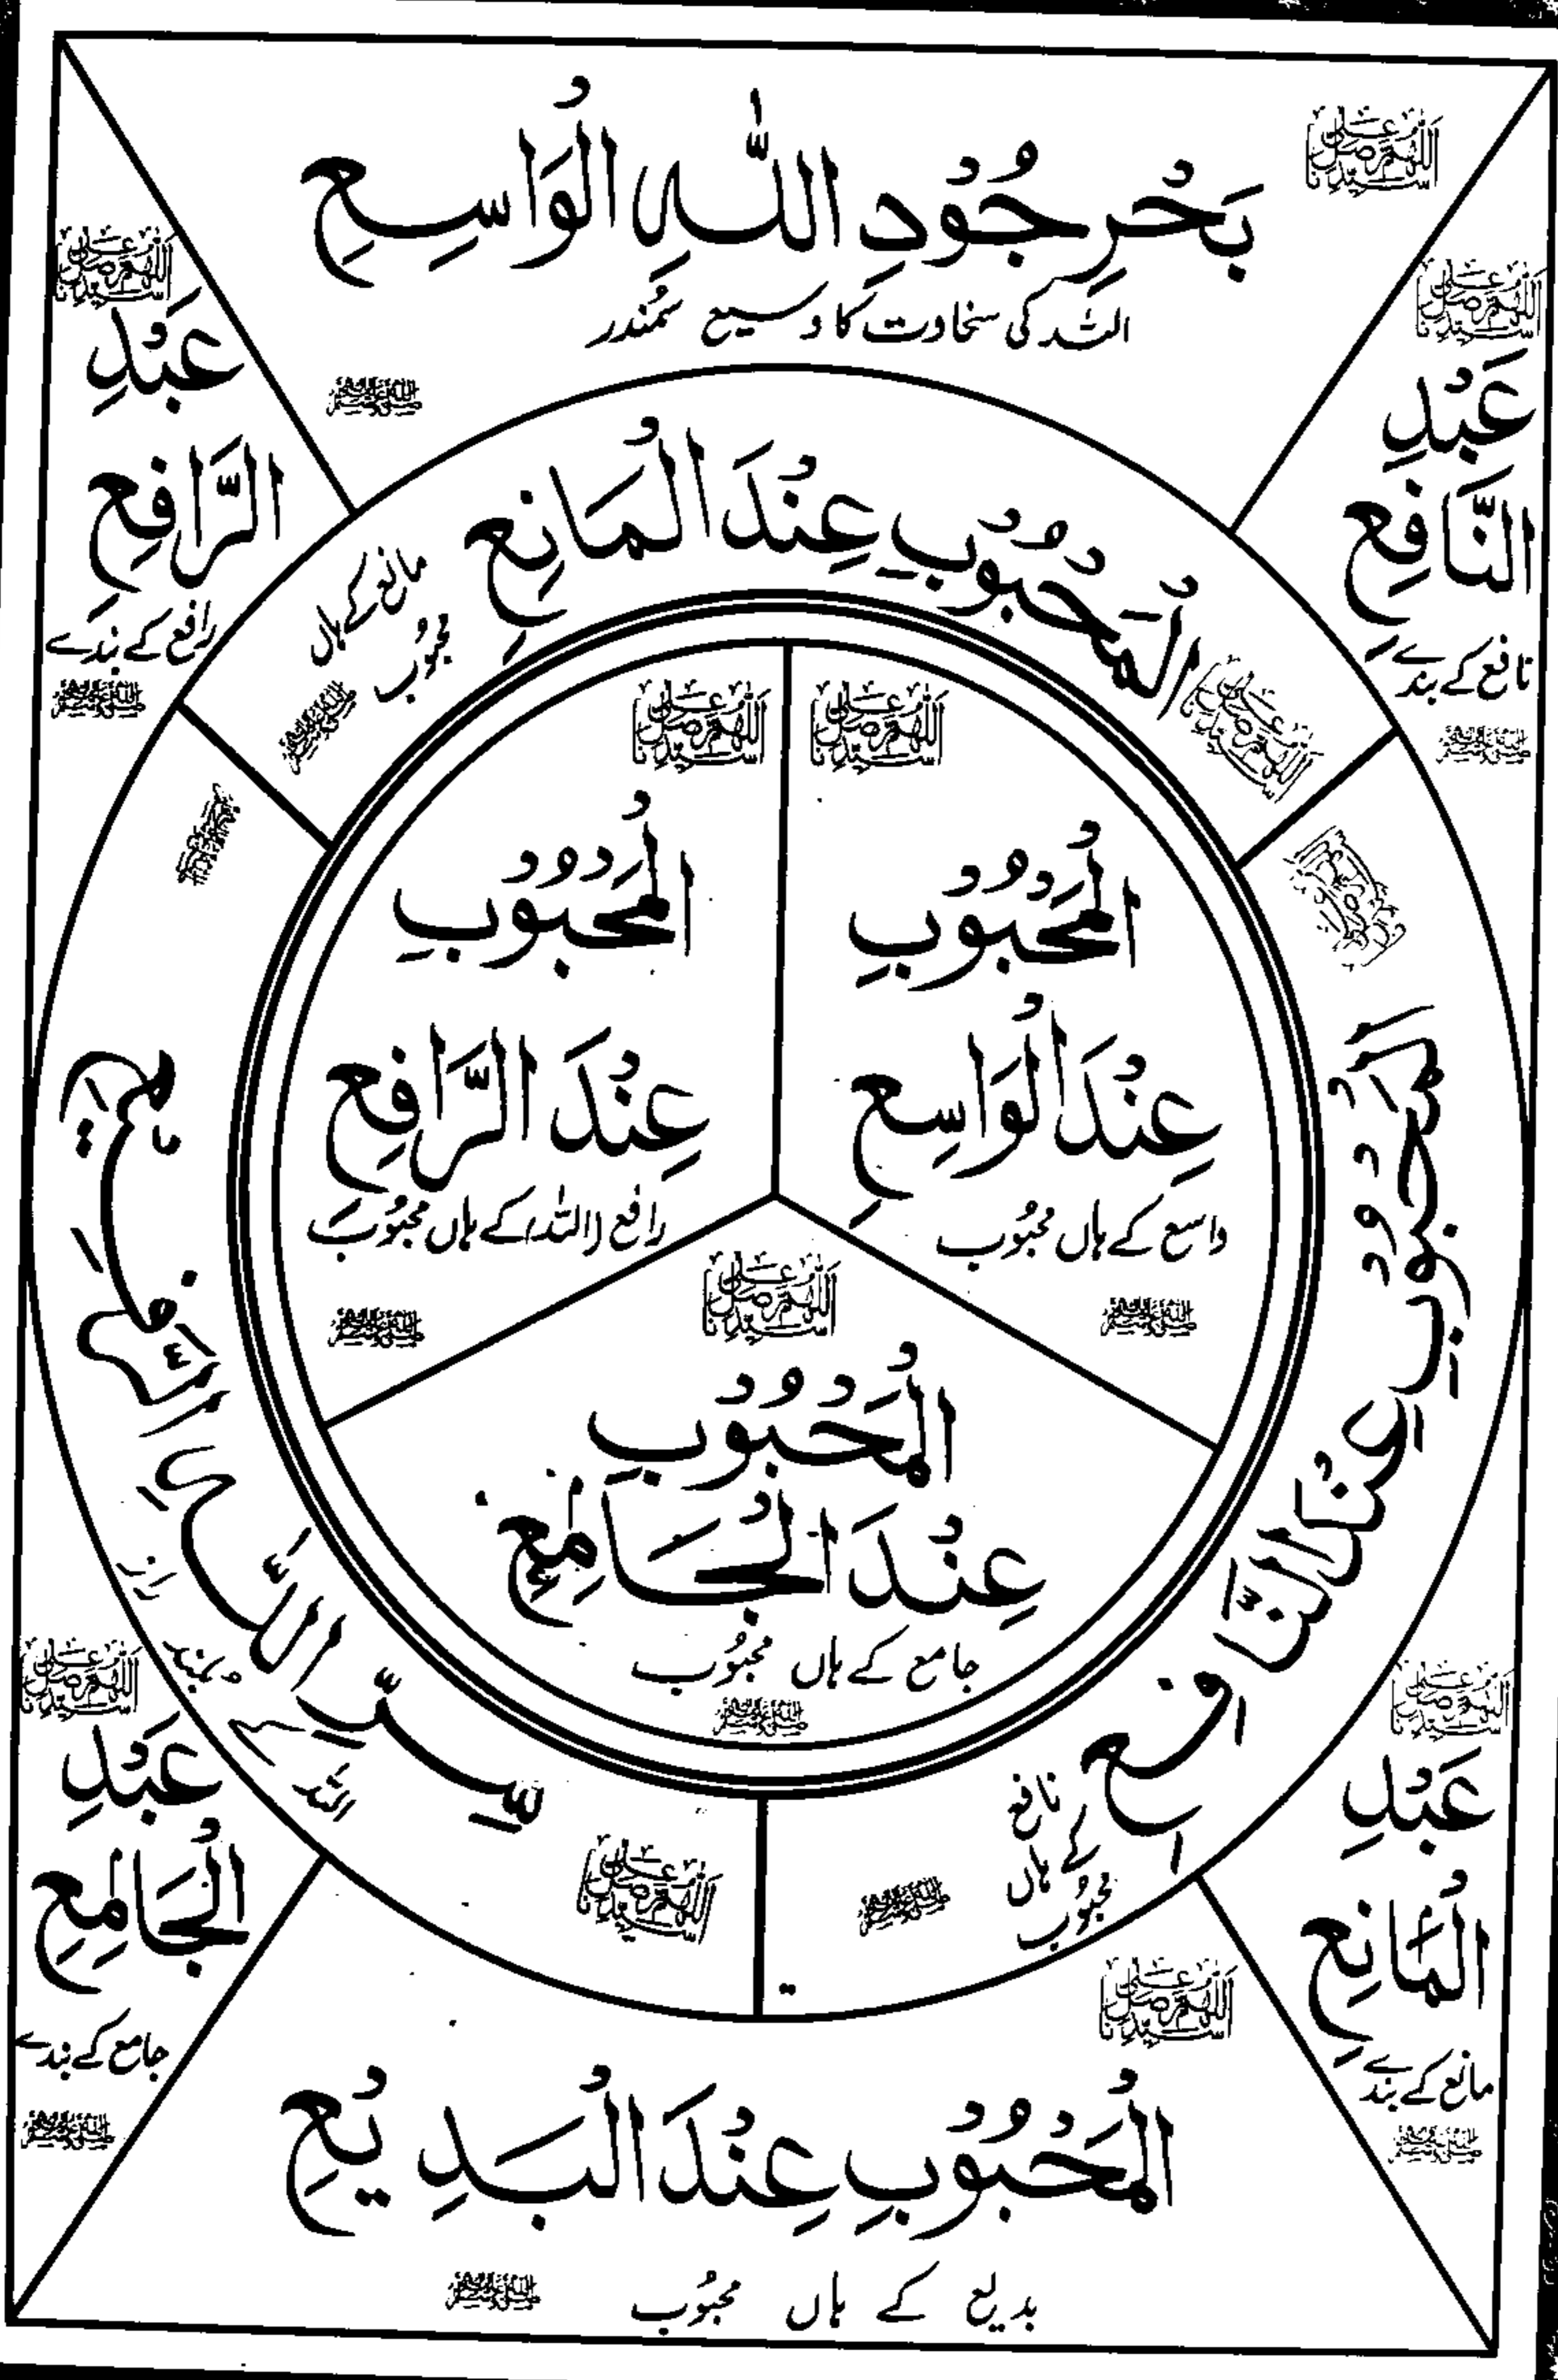 اَللّٰهُمَّ صَلِّ عَلٰى سَيِّدِنَا
بَحْرِ جُوْدِ اللّٰهِ الْوَاسِعِ
اللہ کی سخاوت کا وسیع سمُندر
صلی اللہ علیہ وسلم
اَللّٰهُمَّ صَلِّ عَلٰى سَيِّدِنَا
عَبْدِ
النَّافِعِ
نافع کے بندے
صلی اللہ علیہ وسلم
اَللّٰهُمَّ صَلِّ عَلٰى سَيِّدِنَا
عَبْدِ
الرَّافِعِ
رافع کے بندے
صلی اللہ علیہ وسلم
اَللّٰهُمَّ صَلِّ عَلٰى سَيِّدِنَا
الْمَحْبُوْبِ عِنْدَ الْمَانِعِ
مانع کے ہاں
محبُوب
صلی اللہ علیہ وسلم
اَللّٰهُمَّ صَلِّ عَلٰى سَيِّدِنَا
الْمَحْبُوْبِ
عِنْدَ الْوَاسِعِ
واسع کے ہاں محبُوب
صلی اللہ علیہ وسلم
اَللّٰهُمَّ صَلِّ عَلٰى سَيِّدِنَا
الْمَحْبُوْبِ
عِنْدَ الرَّافِعِ
رافع (اللہ) کے ہاں محبُوب
صلی اللہ علیہ وسلم
اَللّٰهُمَّ صَلِّ عَلٰى سَيِّدِنَا
الْمَحْبُوْبِ
عِنْدَ الْجَامِعِ
جامع کے ہاں محبُوب
صلی اللہ علیہ وسلم
اَللّٰهُمَّ صَلِّ عَلٰى سَيِّدِنَا
الْمَحْبُوْبِ عِنْدَ النَّافِعِ
نافع
کے
ہاں
محبُوب
صلی اللہ علیہ وسلم
اَللّٰهُمَّ صَلِّ عَلٰى سَيِّدِنَا
سِرِّ اللّٰهِ
اللہ
کے
راز
صلی اللہ علیہ وسلم
اَللّٰهُمَّ صَلِّ عَلٰى سَيِّدِنَا
عَبْدِ
الْمَانِعِ
مانع کے بندے
صلی اللہ علیہ وسلم
اَللّٰهُمَّ صَلِّ عَلٰى سَيِّدِنَا
عَبْدِ
الْجَامِعِ
جامع کے بندے
صلی اللہ علیہ وسلم
اَللّٰهُمَّ صَلِّ عَلٰى سَيِّدِنَا
الْمَحْبُوْبِ عِنْدَ الْبَدِيْعِ
بدیع کے ہاں محبُوب
صلی اللہ علیہ وسلم